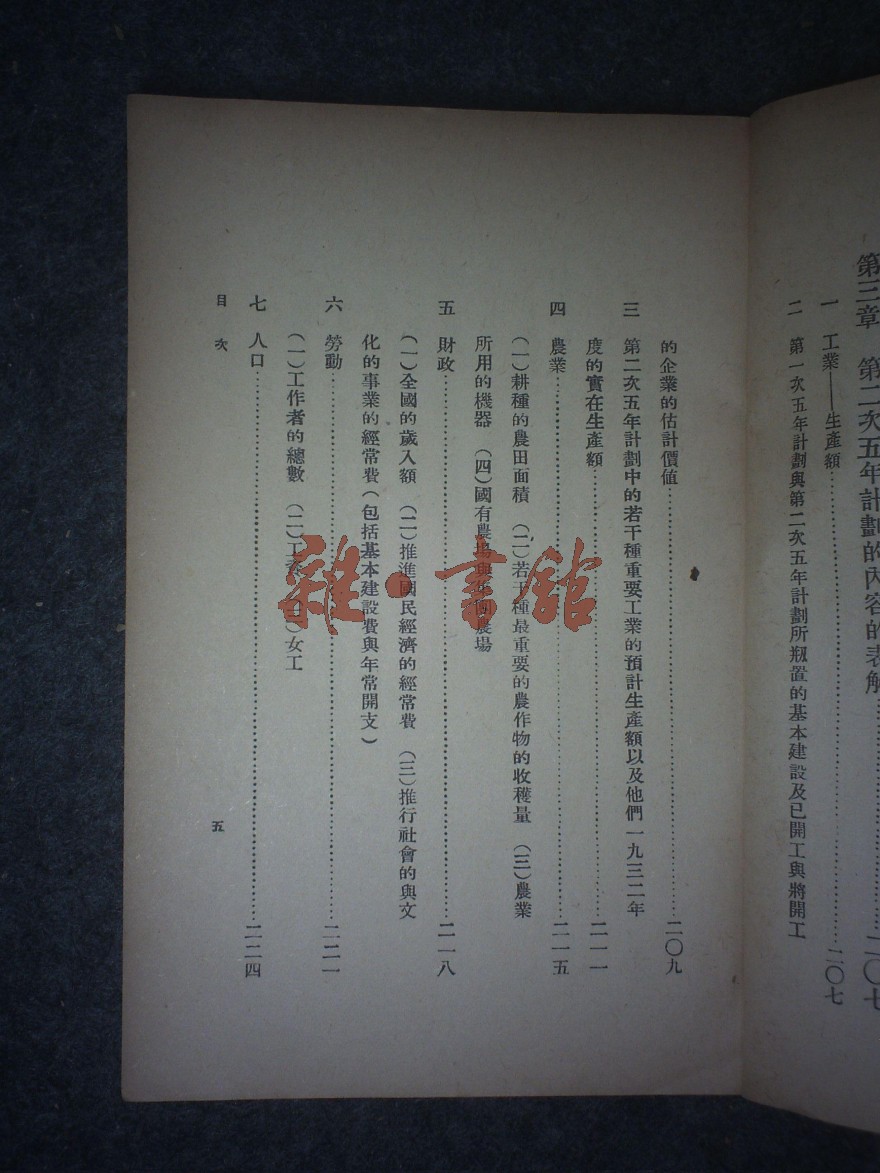 第三章 第二次五年計劃的內容的表解……二〇七
一 工業——生產額……二〇七
二 第一次五年計劃與第二次五年計劃所瓶置的基本建設及已開工與將開工
的企業的估計價值……二〇九
三 第二次五年計劃中的若干種重要工業的預計生產額以及他們一九三二年
度的實在生產額……二一一
四 農業……二一五
(一)耕種的農田面積 (二)若干種最重要的農作物的收穫量 (三)農業
所用的機器 (四)國有農場與 農場
五 財政……二一八
(一)全國的歲入額 (二)推進國民經濟的經常費 (三)推行社會的與文
化的事業的經常費(包括基本建設費與年常開支)
六 勞動……二二一
(一)工作者的總數 (二)工 (三)女工
七 人口……二二四
目次
五
雜·書館